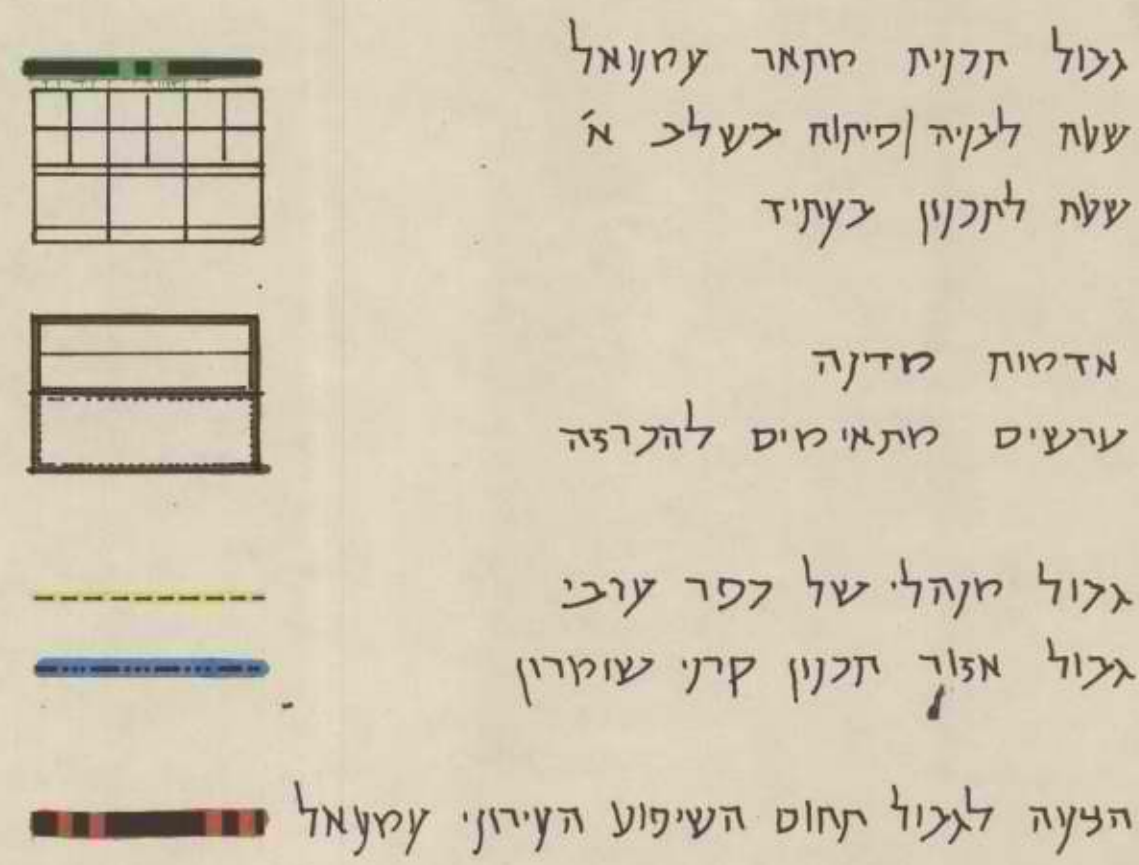 גבול תכנית מתאר עמנואל
שטח לבניה/פיתוח בשלב א'
שטח לתכנון בעתיד
אדמות מדינה
ערשים מתאימים להכרזה
גבול מנהלי של כפר ערבי
גבול אזור תכנון קרני שומרון
הצעה לגבול תחום השיפוע העירוני עמנואל